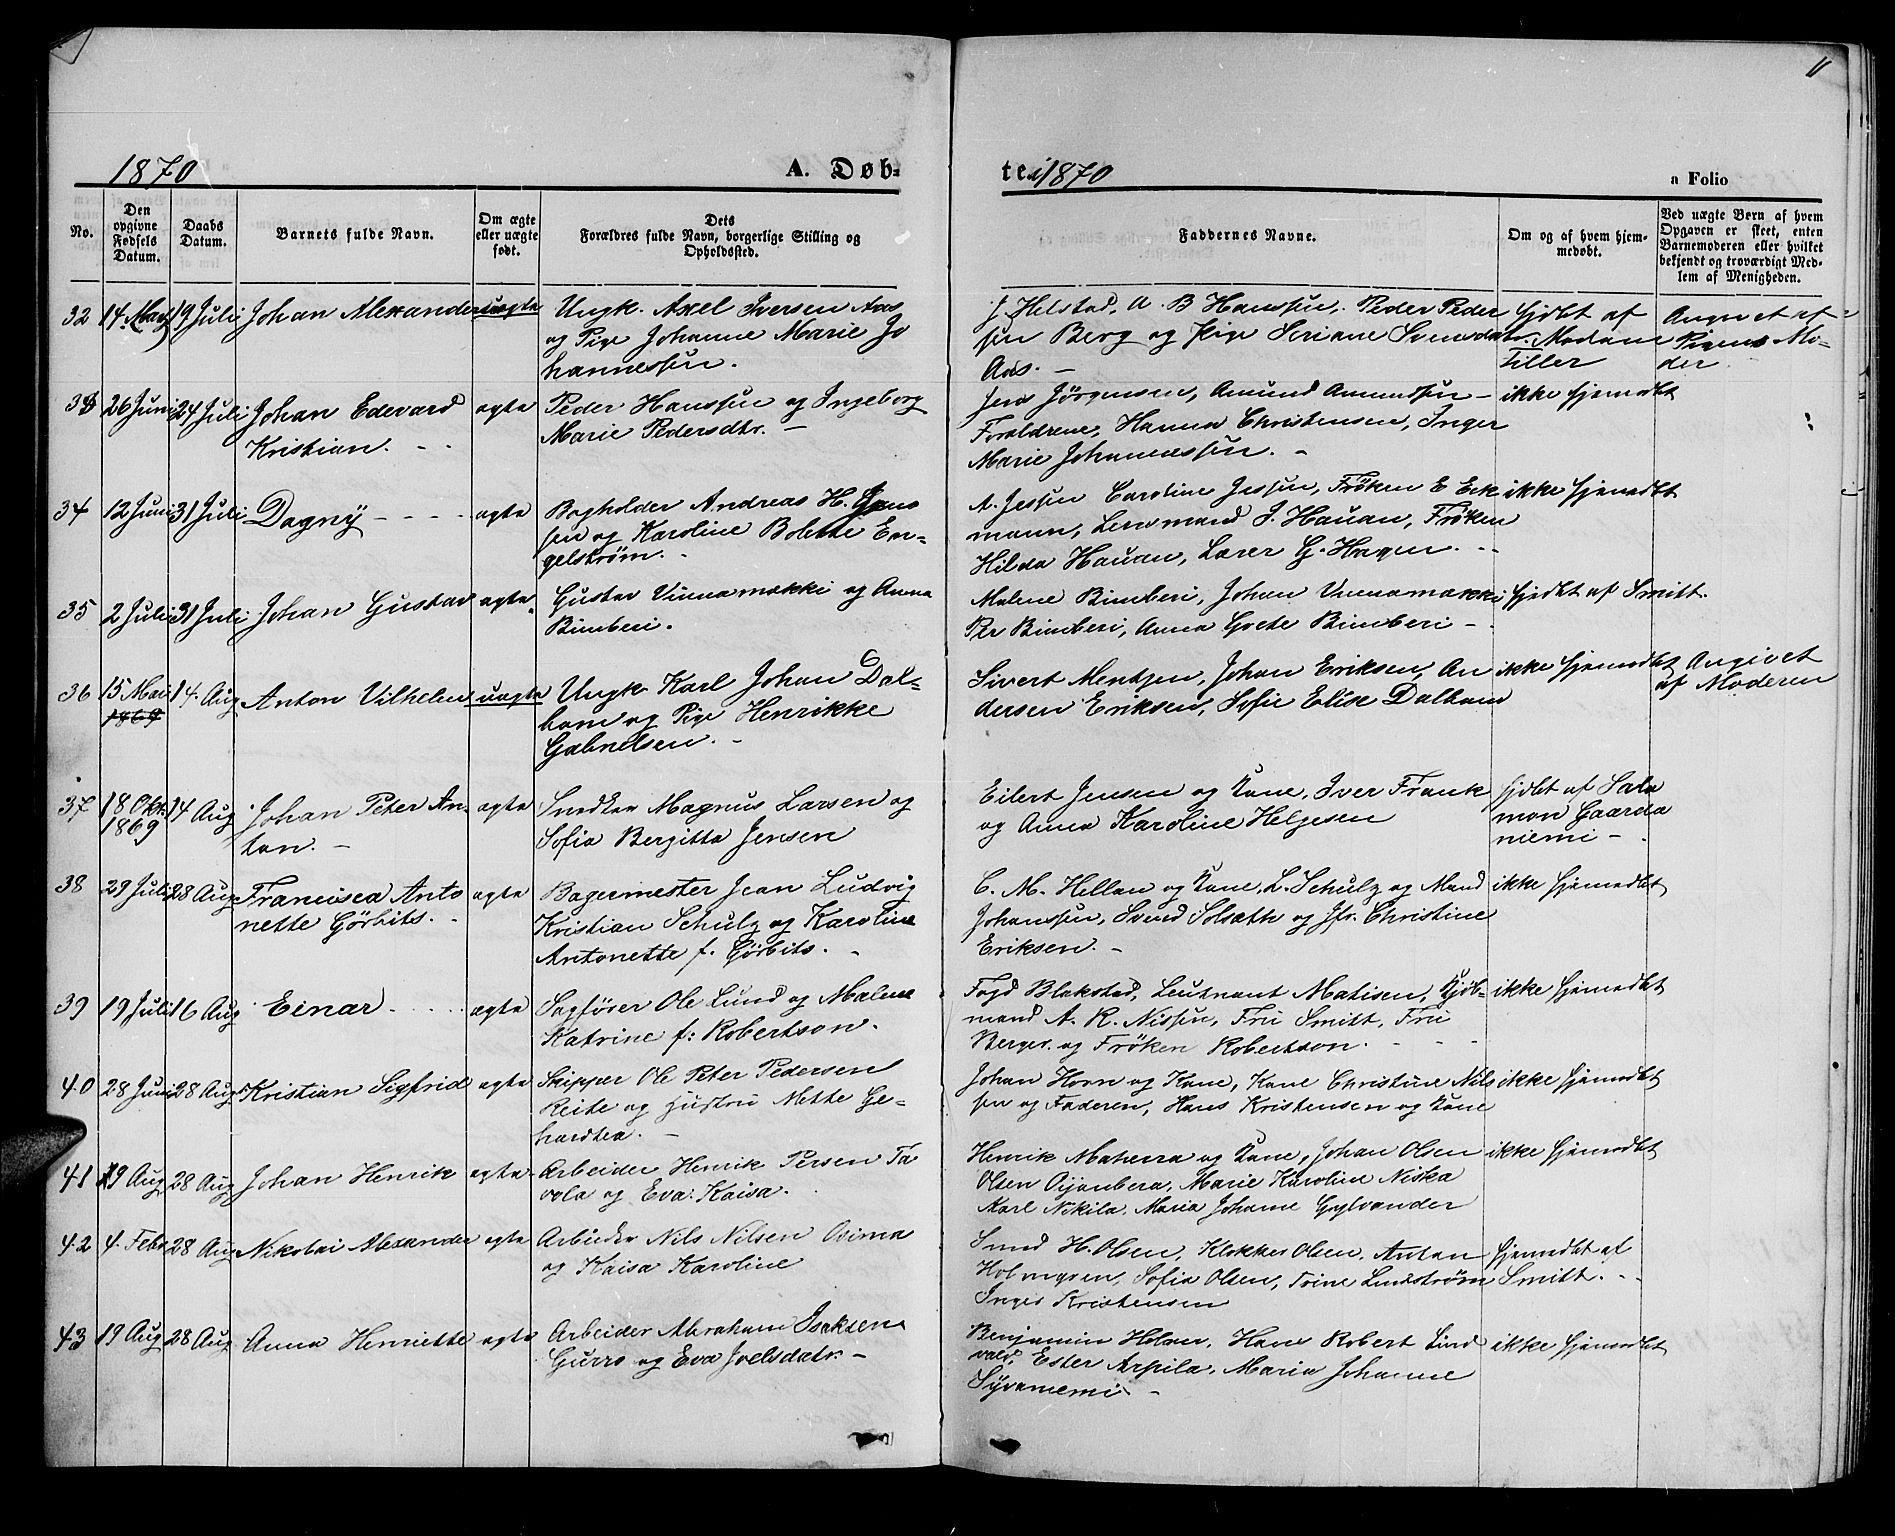 11
1870
A. Døb-
te i 1870
a Folio
No.
Den
opgivne
Fødsels
Datum.
Daabs
Datum.
Barnets fulde Navn.
Om ægte
eller uægte
født.
Dets
Forældres fulde Navn, borgerlige Stilling og
Opholdssted.
Faddernes Navne.
Om og af hvem hjem-
medøbt.
Ved uægte Børn af hvem
Opgaven er skeet, enten
Barnemoderen eller hvilket
bekjendt og troværdigt Med-
lem af Menigheden.
32 14 Marts 19 Juli Johan Alexander uægte Ungk. Axel Iversen Aas
og Pige Johanne Marie Jo
hannessen.
J. Helstad, A. B Hanssen, Peder Peder
sen Berg og Pige Seriane Svensdatr.
Aas. -
hjdbt af
Madame
Tiller
Angivet af
Pigens Mo-
der
33 26 Juni 24 Juli Johan Edevard
Kristian. - -
ægte Peder Hanssen og Ingeborg
Marie Pedersdtr. -
Jens Jörgensen, Amund Amundsen -
Forældrene, Hanna Christensen, Inger
Marie Johannessen. -
ikke hjemedbt
34 12 Juni 31 Juli Dagny - - - - ægte Bogholder Andreas H. Jens
sen og Karoline Bolette En-
gelstrøm. -
A. Jessen Caroline Jessen, Frøken E Eck
mann, Lensmand J. Hauan, Frøken
Hilda Hauan, Lærer G. Hagen. - -
ikke hjemedbt
35 2 Juli 31 Juli Johan Gustav ægte. Gustav Vinnamækki og Anna
Bimberi.
Malene Bimberi, Johan Vinnamækki
Per Bimberi, Anna Grete Bimberi -
hjedbt af Smitt.
36 15 Mai
1869
14. Aug Anton Vilhelm uægte Ungk Karl Johan Dal-
ham og Pige Henrikke
Gabrielsen. -
Sivert Mentzen, Johan Eriksen, An
dersen Eriksen, Sofie Elise Dalham
ikke hjemedbt
Angivet
af Moderen
37 18 Okt.
1869
14 Aug Johan Peter An-
ton. -
ægte Snedker Magnus Larsen og
Sofia Bergitta Jensen
Eilert Jensen og Kone, Iver Frank
og Anna Karoline Helgesen
hjdbt af Sala
mon Gaarda
niemi -
38 29 Juli 28 Aug Francisca Anto
nette Görbits. -
ægte Bagermester Jean Ludvig
Kristian Schulz og Karoline
Antonette f. Görbits. -
C. M. Hellan og Kone, L. Schulz og Mand
Johanssen, Svend Solsæth og Jfr. Christine
Eriksen. -
ikke hjemedbt
39 19 Juli 16 Aug Einar - - - - ægte Sagfører Ole Lund og Malene
Katrine f: Robertson.
Fogd Blakstad, Leutnant Matisen, Kjöb-
mand A. R. Nissen, Fru Smitt, Fru
Berger og Frøken Robertson. - - -
ikke hjemedbt
40 28 Juni 28 Aug Kristian Sigfrid ægte Skipper Ole Peter Pedersen
Reite og Hustru Mette Ge-
hardtea. -
Johan Horn og Kone, Kone Christine Nils
sen og Faderen, Hans Kristensen og Kone
ikke hjemedbt
41 19 Aug 28 Aug Johan Henrik ægte Arbeider Henrik Persen Ta
vola og Eva Kaisa.
Henrik Materra og Kone, Johan Olsen
Olsen Oijanbera, Marie Karoline Niska
Karl Nikila, Maria Johanne Gylvander
ikke hjemedbt
42 4. Febr 28 Aug Nikolai Alexander ægte Arbeider Nils Nilsen Osima
og Kaisa Karoline
Smed H. Olsen, Klokker Olsen, Anton
Holmgren, Sofia Olsen, Trine Lindstrøm
Inger Kristensen
hjemedbt af
Smitt. - -
43 19 Aug 28 Aug Anna Henriette ægte Arbeider Abraham Isaksen
Gurro og Eva Joelsdatr. -
Benjamin Holm, Hans Robert Lind
vald, Ester Arpila, Maria Johanne
Syvaniemi -
ikke hjemedbt